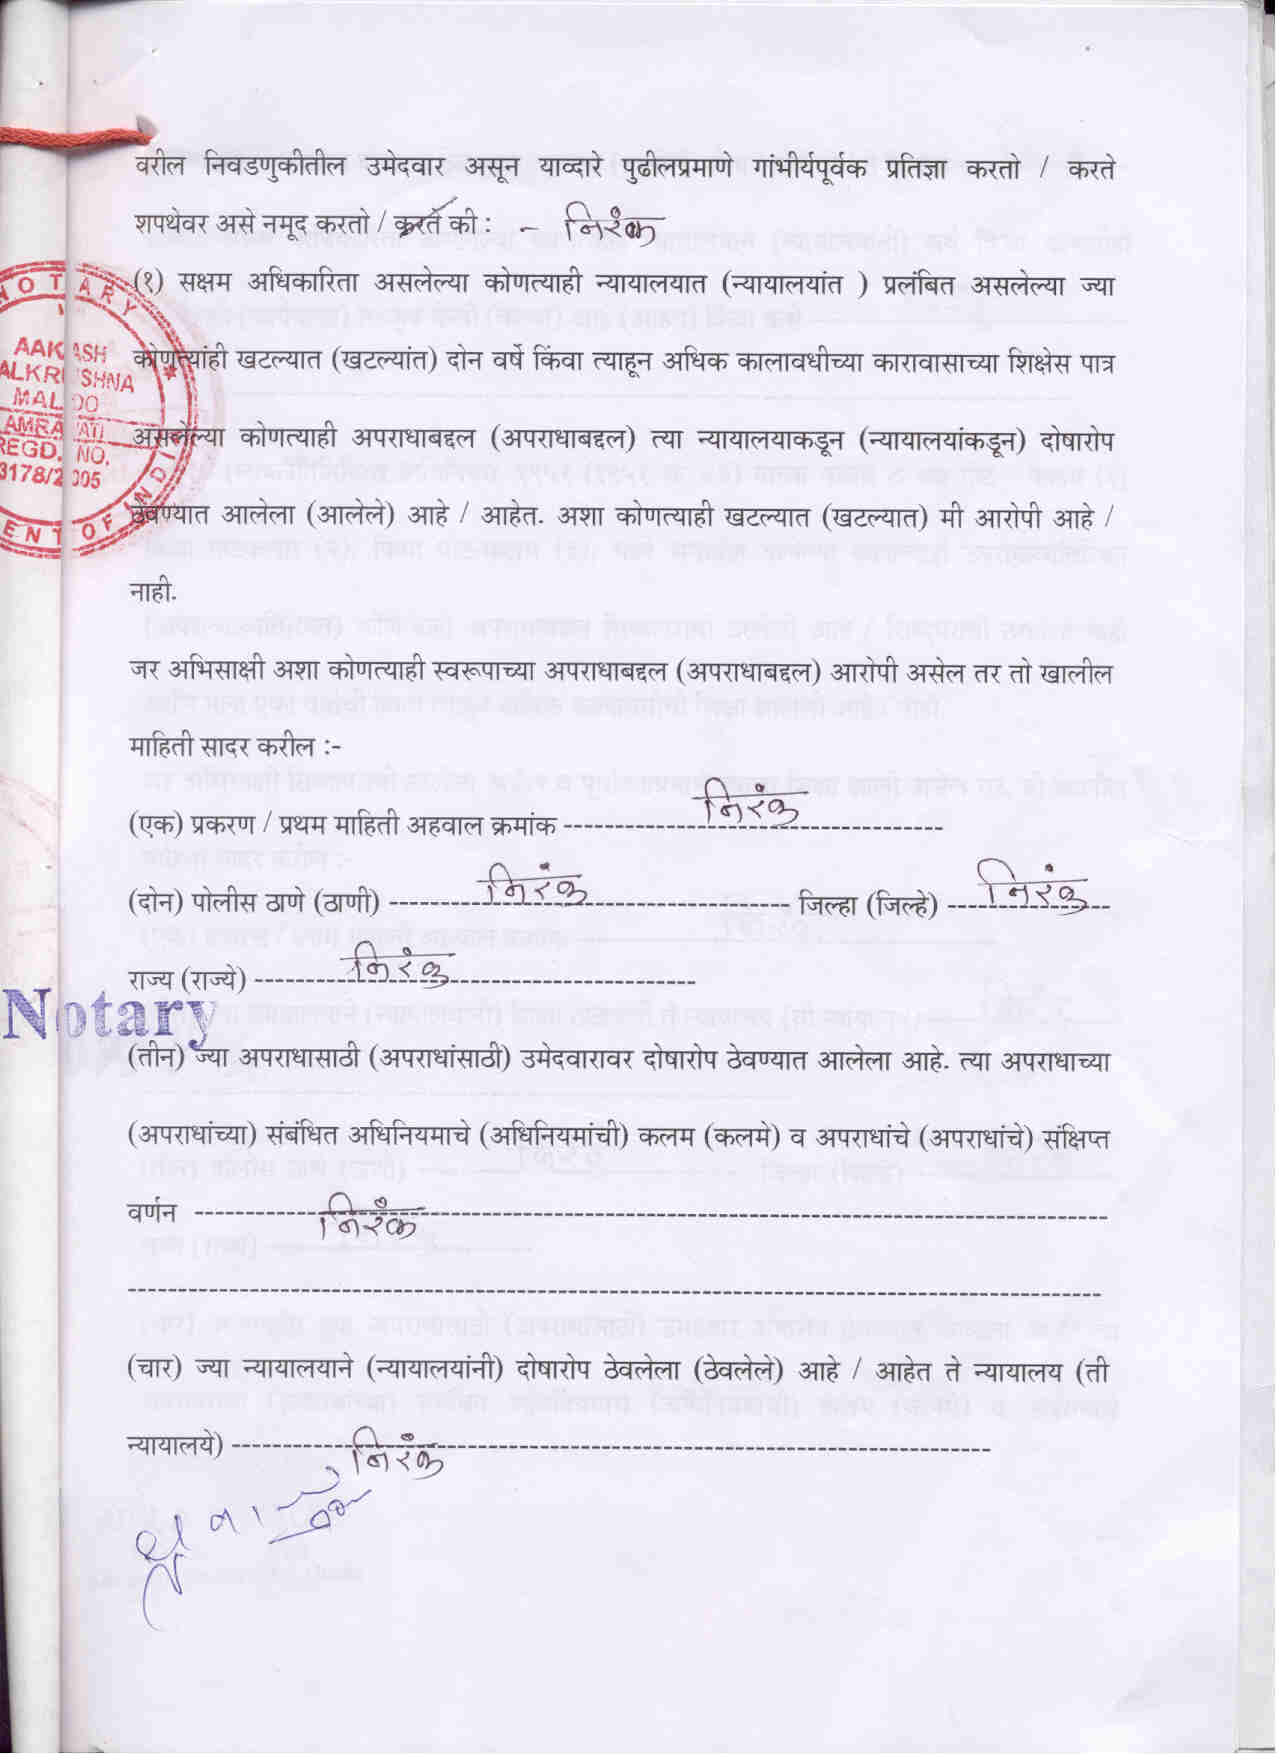 वरील निवडणुकीतील उमेदवार असून याव्दारे पुढीलप्रमाणे गांभीर्यपूर्वक प्रतिज्ञा करतो / करते
शपथेवर असे नमूद करतो / करते की : - निरंक
(१) सक्षम अधिकारिता असलेल्या कोणत्याही न्यायालयात (न्यायालयांत ) प्रलंबित असलेल्या ज्या
कोणत्यांही खटल्यात (खटल्यांत) दोन वर्षे किंवा त्याहून अधिक कालावधीच्या कारावासाच्या शिक्षेस पात्र
असलेल्या कोणत्याही अपराधाबद्दल (अपराधाबद्दल) त्या न्यायालयाकडून (न्यायालयांकडून) दोषारोप
ठेवण्यात आलेला (आलेले) आहे / आहेत. अशा कोणत्याही खटल्यात (खटल्यात) मी आरोपी आहे /
नाही.
जर अभिसाक्षी अशा कोणत्याही स्वरूपाच्या अपराधाबद्दल (अपराधाबद्दल) आरोपी असेल तर तो खालील
माहिती सादर करील :-
(एक) प्रकरण / प्रथम माहिती अहवाल क्रमांक ------------ निरंक ------------
(दोन) पोलीस ठाणे (ठाणी) ------------ निरंक ------------ जिल्हा (जिल्हे) ------ निरंक ------
राज्य (राज्ये) ------------ निरंक ------------
(तीन) ज्या अपराधासाठी (अपराधांसाठी) उमेदवारावर दोषारोप ठेवण्यात आलेला आहे. त्या अपराधाच्या
(अपराधांच्या) संबंधित अधिनियमाचे (अधिनियमांची) कलम (कलमे) व अपराधांचे (अपराधांचे) संक्षिप्त
वर्णन ------------ निरंक ------------
(चार) ज्या न्यायालयाने (न्यायालयांनी) दोषारोप ठेवलेला (ठेवलेले) आहे / आहेत ते न्यायालय (ती
न्यायालये) ------------ निरंक ------------
NOTARY
AAKASH
MALOO
AMRAVATI
REGD. NO.
3178/2005
Notary